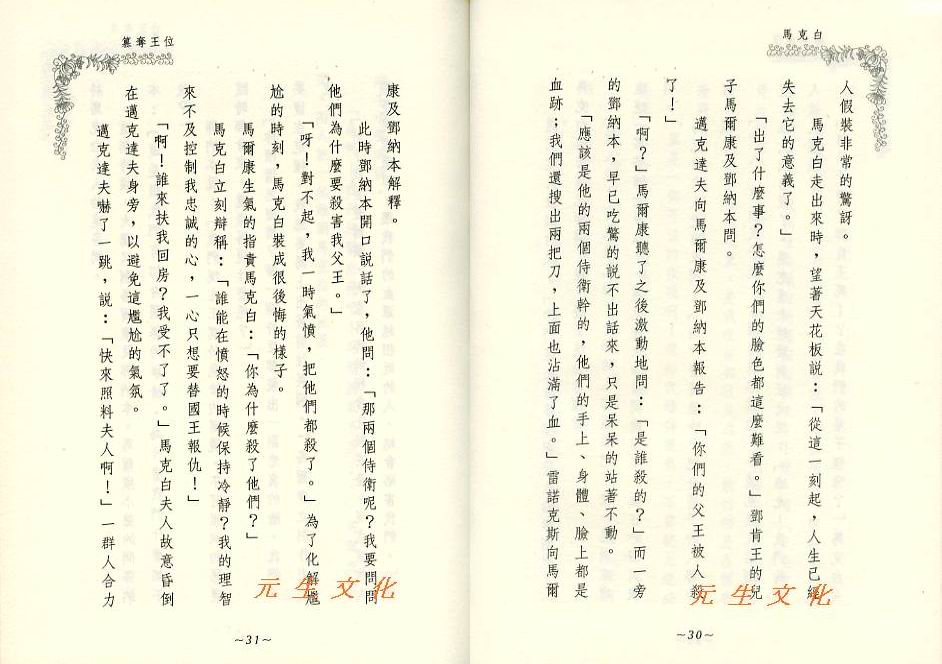 馬克白
人假裝非常的驚訝。
馬克白走出來時，望著天花板說：「從這一刻起，人生已經
失去它的意義了。」
「出了什麼事？怎麼你們的臉色都這麼難看。」鄧肯王的兒
子馬爾康及鄧納本問。
邁克達夫向馬爾康及鄧納本報告：「你們的父王被人殺
了！」
「啊？」馬爾康聽了之後激動地問：「是誰殺的？」而一旁
的鄧納本，早已吃驚的說不出話來，只是呆呆的站著不動。
「應該是他的兩個侍衛幹的，他們的手上、身體、臉上都是
血跡；我們還搜出兩把刀，上面也沾滿了血。」雷諾克斯向馬爾
~30~
篡奪王位
康及鄧納本解釋。
此時鄧納本開口說話了，他問：「那兩個侍衛呢？我要問問
他們為什麼要殺害我父王。」
「呀！對不起，我一時氣憤，把他們都殺了。」為了化解尷
尬的時刻，馬克白裝成很後悔的樣子。
馬爾康生氣的指責馬克白：「你為什麼殺了他們？」
馬克白立刻辯稱：「誰能在憤怒的時候保持冷靜？我的理智
來不及控制我忠誠的心，一心只想要替國王報仇！」
「啊！誰來扶我回房？我受不了了。」馬克白夫人故意昏倒
在邁克達夫身旁，以避免這尷尬的氣氛。
邁克達夫嚇了一跳，說：「快來照料夫人啊！」一群人合力
~31~
元生文化
元生文化